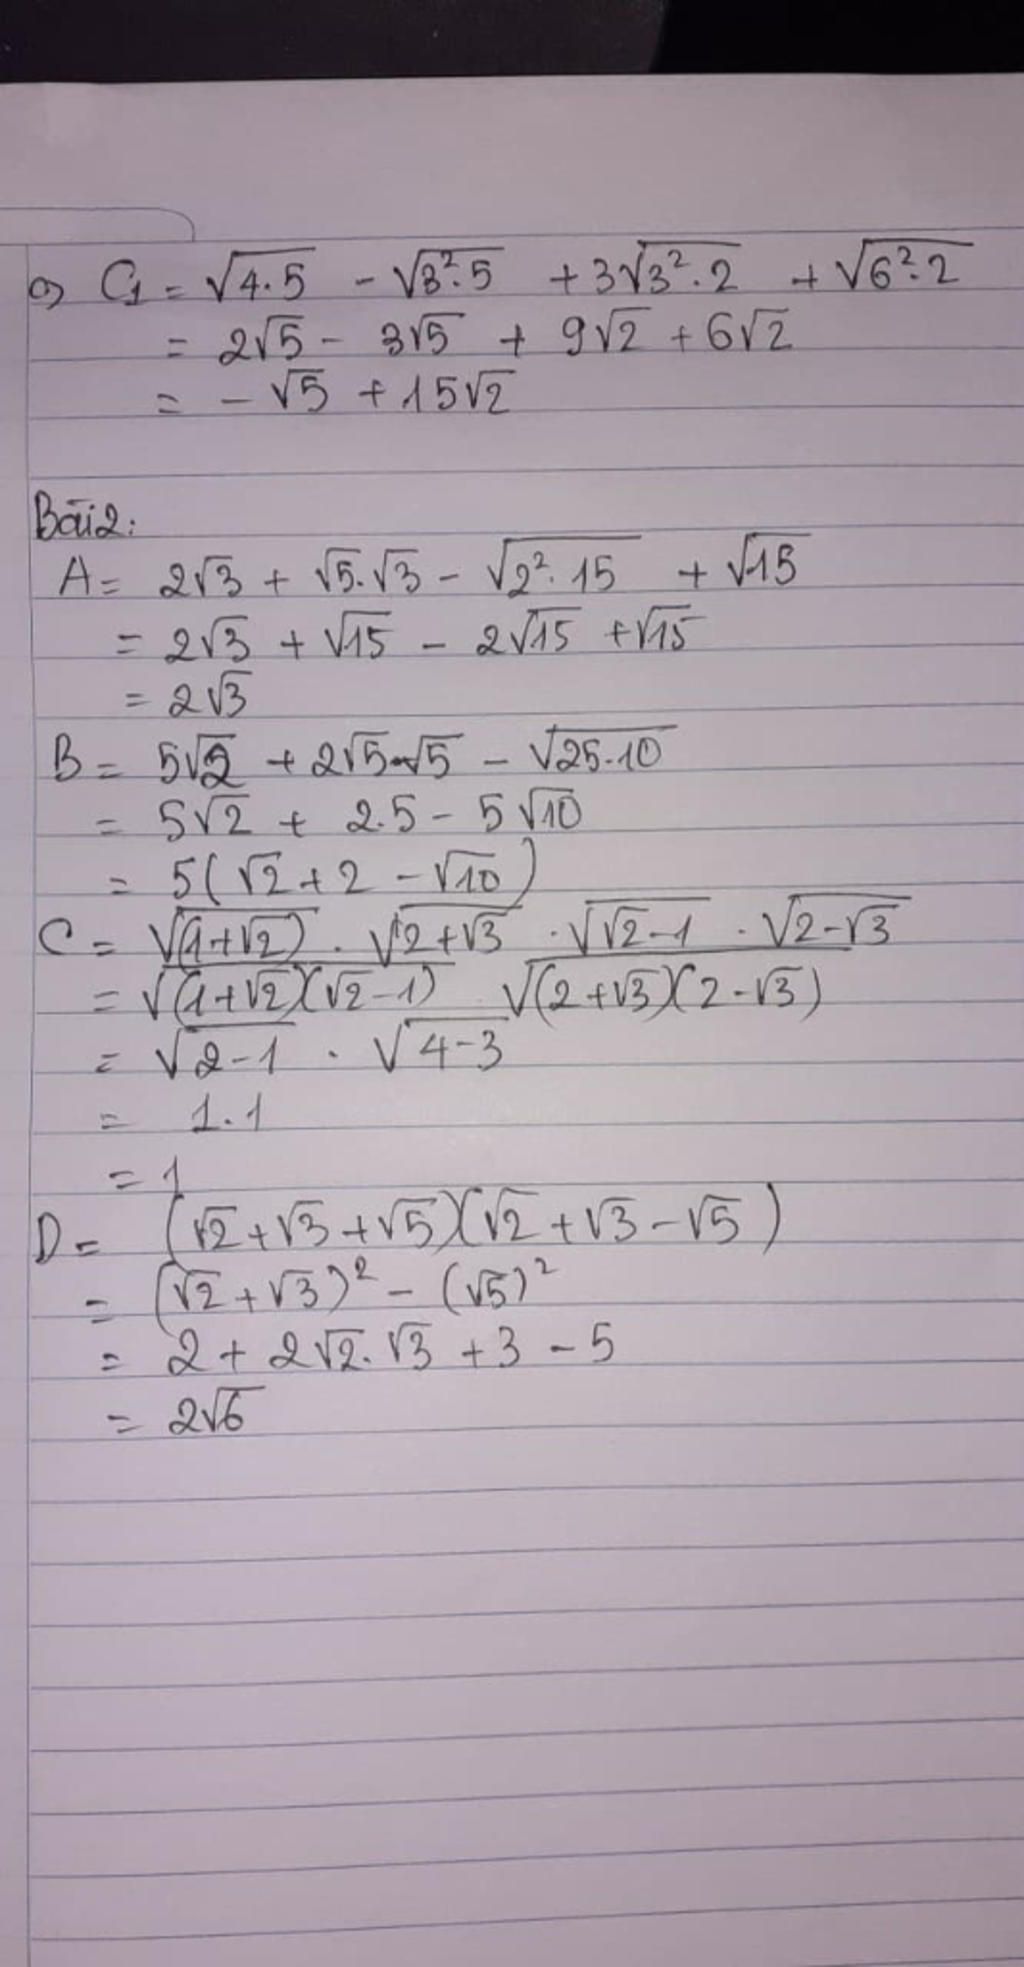 c) C₁ = √(4.5) - √(3².5) + 3√(3².2) + √(6².2)
= 2√5 - 3√5 + 9√2 + 6√2
= -√5 + 15√2
Bài 2:
A = 2√3 + √5.√3 - √(2².15) + √15
= 2√3 + √15 - 2√15 + √15
= 2√3
B = 5√2 + 2√5.√5 - √(25.10)
= 5√2 + 2.5 - 5√10
= 5(√2 + 2 - √10)
C = √(1+√2) . √(2+√3) . √(√2-1) . √(2-√3)
= √((1+√2)(√2-1)) . √((2+√3)(2-√3))
= √(2-1) . √(4-3)
= 1.1
= 1
D = (√2+√3+√5)(√2+√3-√5)
= (√2+√3)² - (√5)²
= 2 + 2√2.√3 + 3 - 5
= 2√6